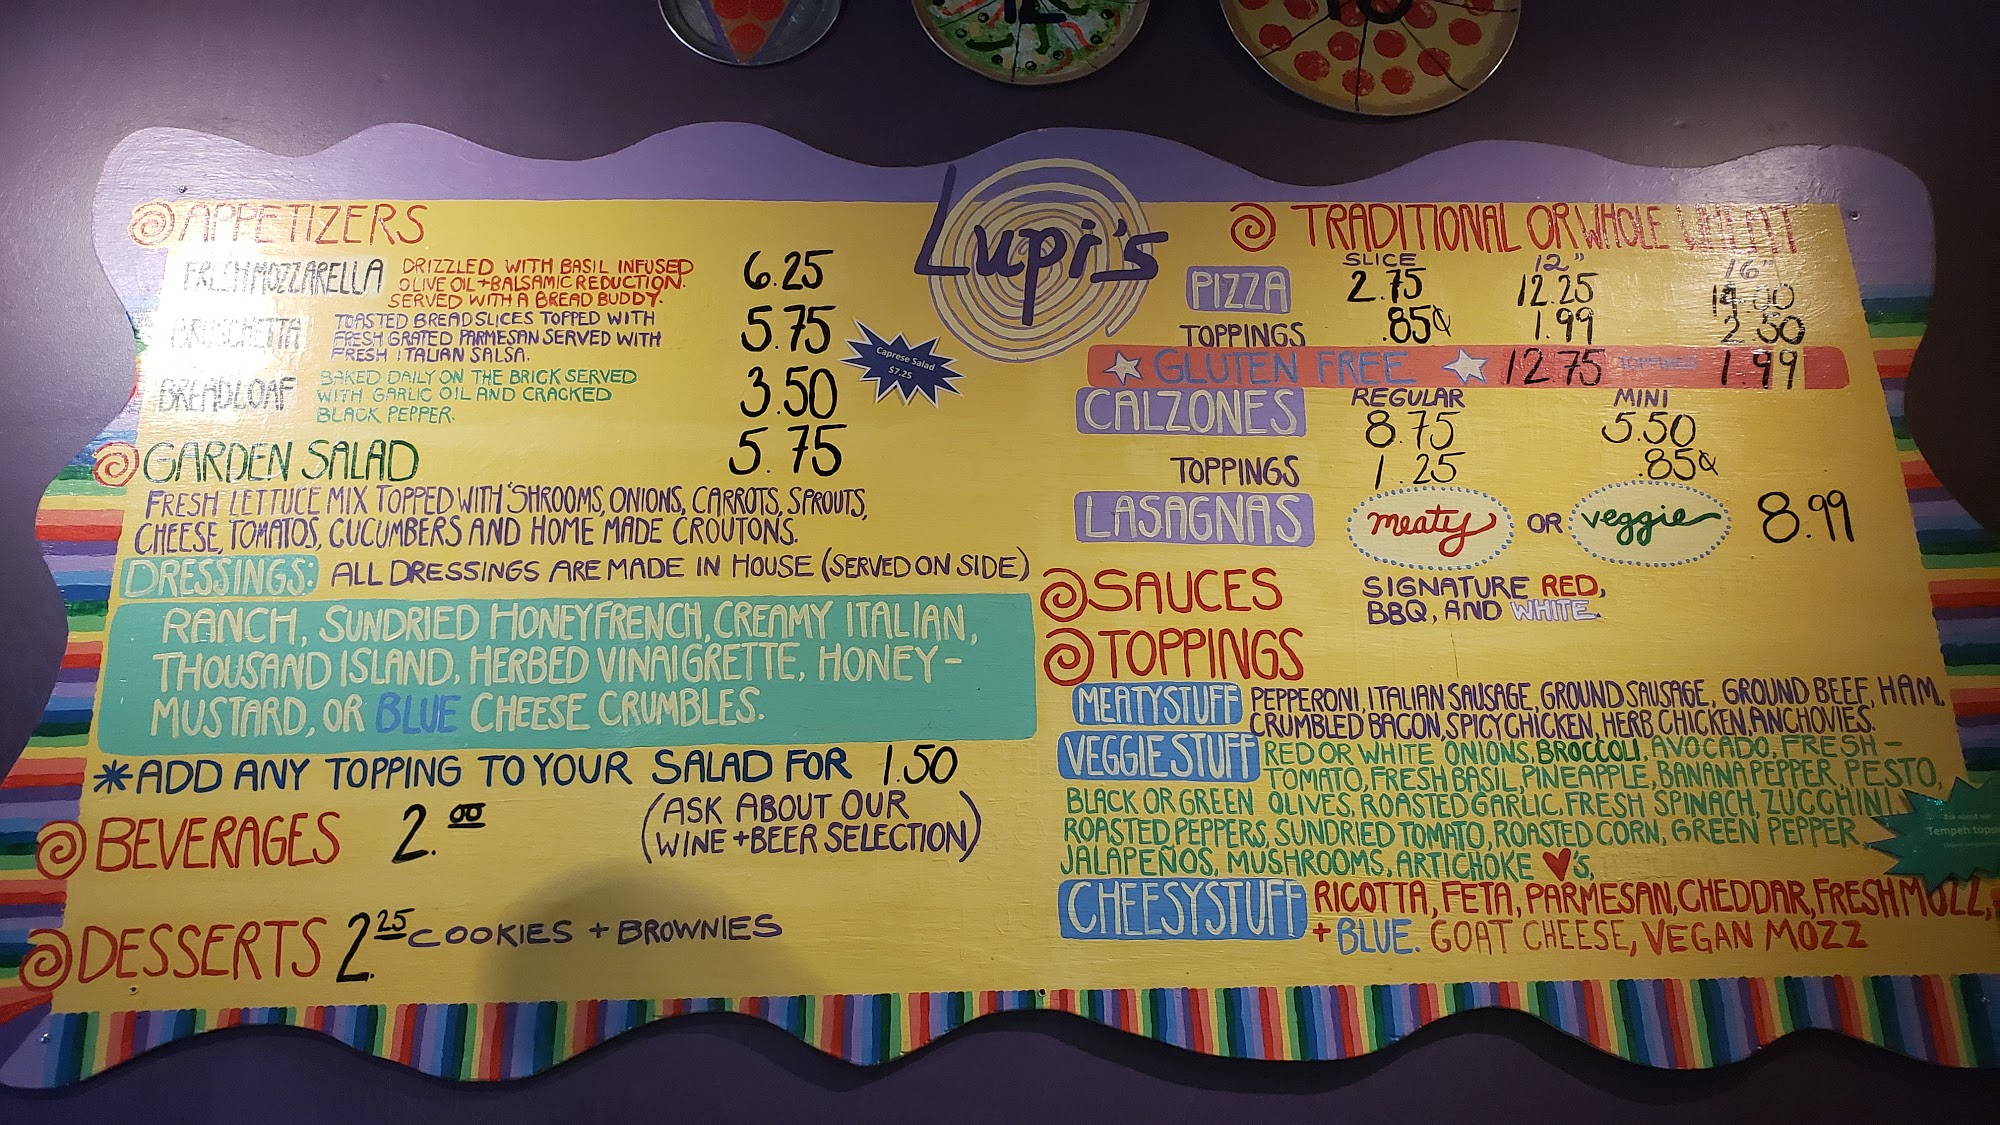 Lupi's
APPETIZERS
FRESH MOZZARELLA DRIZZLED WITH BASIL INFUSED OLIVE OIL + BALSAMIC REDUCTION. SERVED WITH A BREAD BUDDY. 6.25
BRUSCHETTA TOASTED BREAD SLICES TOPPED WITH FRESH GRATED PARMESAN SERVED WITH FRESH ITALIAN SALSA. 5.75
Caprese Salad
$7.25
BREADLOAF BAKED DAILY ON THE BRICK SERVED WITH GARLIC OIL AND CRACKED BLACK PEPPER. 3.50
GARDEN SALAD 5.75
FRESH LETTUCE MIX TOPPED WITH 'SHROOMS, ONIONS, CARROTS, SPROUTS,
CHEESE, TOMATOS, CUCUMBERS AND HOME MADE CROUTONS.
DRESSINGS: ALL DRESSINGS ARE MADE IN HOUSE (SERVED ON SIDE)
RANCH, SUNDRIED HONEY FRENCH, CREAMY ITALIAN,
THOUSAND ISLAND, HERBED VINAIGRETTE, HONEY-
MUSTARD, OR BLUE CHEESE CRUMBLES.
*ADD ANY TOPPING TO YOUR SALAD FOR 1.50
BEVERAGES 2.00 (ASK ABOUT OUR
WINE + BEER SELECTION)
DESSERTS 2.25 COOKIES + BROWNIES
TRADITIONAL OR WHOLE WHEAT
SLICE 12" 16"
PIZZA 2.75 12.25
TOPPINGS .85¢ 1.99 2.50
GLUTEN FREE 12.75 TOPPINGS 1.99
REGULAR MINI
CALZONES 8.75 5.50
TOPPINGS 1.25 .85¢
LASAGNAS meaty OR veggie 8.99
SAUCES SIGNATURE RED,
BBQ, AND WHITE.
TOPPINGS
MEATYSTUFF PEPPERONI, ITALIAN SAUSAGE, GROUND SAUSAGE, GROUND BEEF, HAM,
CRUMBLED BACON, SPICY CHICKEN, HERB CHICKEN, ANCHOVIES.
VEGGIE STUFF RED OR WHITE ONIONS, BROCCOLI, AVOCADO, FRESH-
TOMATO, FRESH BASIL, PINEAPPLE, BANANA PEPPER, PESTO,
BLACK OR GREEN OLIVES, ROASTED GARLIC, FRESH SPINACH, ZUCCHINI
ROASTED PEPPERS, SUNDRIED TOMATO, ROASTED CORN, GREEN PEPPER
JALAPEÑOS, MUSHROOMS, ARTICHOKE ♥'S,
Tempeh
CHEESYSTUFF RICOTTA, FETA, PARMESAN, CHEDDAR, FRESH MOZZ,
+ BLUE. GOAT CHEESE, VEGAN MOZZ